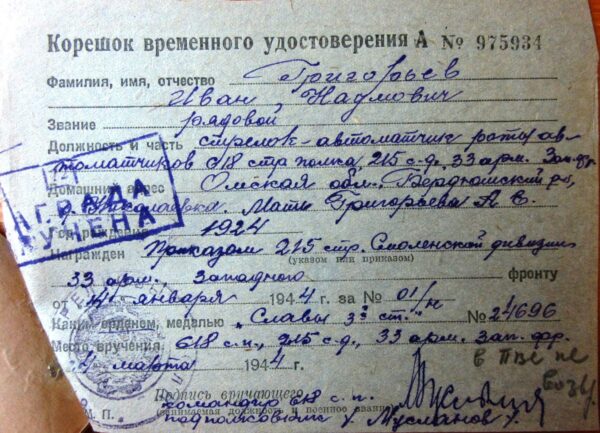 Корешок временного удостоверения А № 975934
Фамилия, имя, отчество Григорьев
Иван Наумович
Звание рядовой
Должность и часть стрелок-автоматчик роты ав
томатчиков 618 стр полка 215 с.д. 33 арм. Зап. фр.
Домашний адрес Омская обл., Бердюжский р-н,
Мать Григорьева А. Е.
Год рождения 1924
НАГРАДА
ВРУЧЕНА
Награжден Приказом 215 стр. Смоленской дивизии
(указом или приказом)
33 арм., Западного фронту
от января 1944 г. за № 01/н
Каким орденом, медалью "Славы 3й ст." № 24696
Место вручения 618 с.п., 215 с.д., 33 арм. Зап. фр.
марта 1944
в
возу.
Подпись вручающего
командир 618 с. п.
М. П. (занимаемая должность и военное звание)
подполковник Мусланов